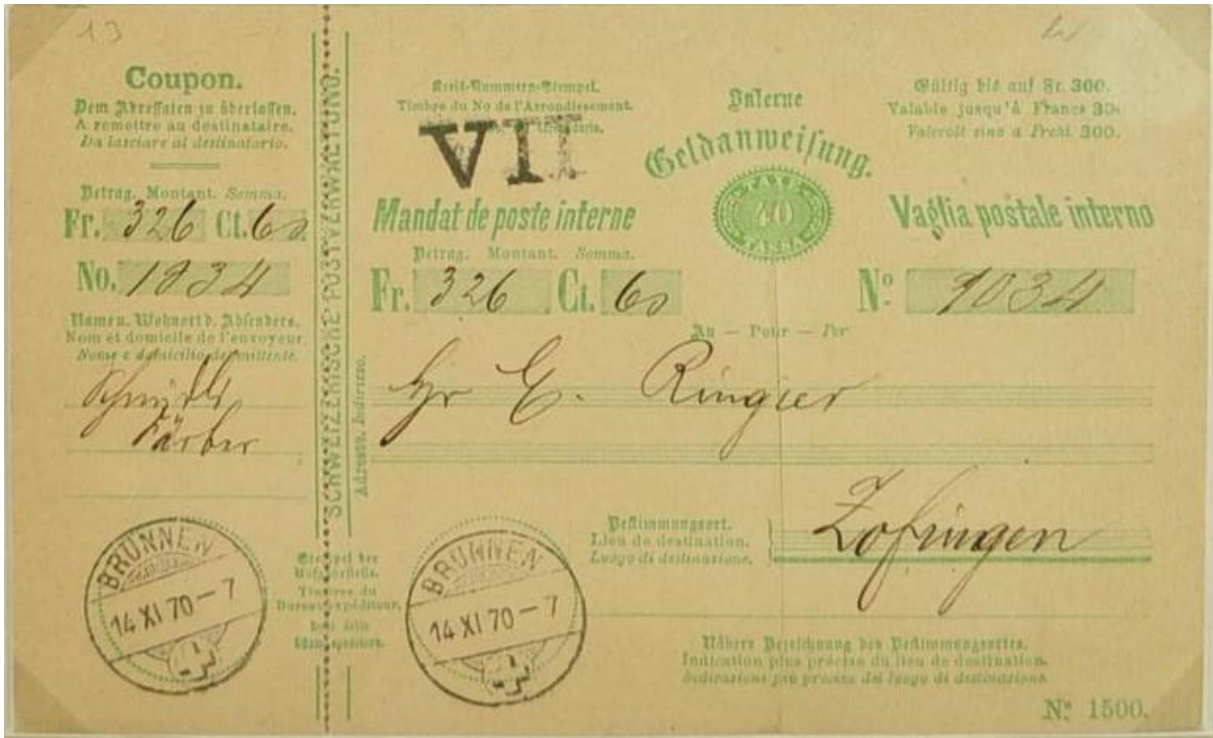 13
Coupon.
Dem Adressaten zu überlassen.
A remettre au destinataire.
Da lasciare al destinatorio.
Betrag. Montant. Somma.
Fr. 326 Ct. 60
No. 1034
Namen u. Wohnort d. Absenders.
Nom et domicile de l'envoyeur.
Nome e domicilio del mittente.
Färber
BRUNNEN
14 XI 70 – 7
SCHWEIZERISCHE POSTVERWALTUNG.
Stempel der
Aufgabestelle.
Timbre du
Bureau expéditeur.
Kreis-Nummern-Stempel.
Timbre du No de l'Arrondissement.
VII
Interne
Geldanweisung.
TAXE
40
TASSA
Gültig bis auf Fr. 300.
Valable jusqu'à Francs 300
Valevole sino a Frchi. 300.
Mandat de poste interne
Vaglia postale interno
Betrag. Montant. Somma.
Fr. 326 Ct. 60
No. 1034
An – Pour – Per
Adresse. Indirizzo.
Hr E. Ringier
Bestimmungsort.
Lieu de destination.
Luogo di destinazione.
Zofingen
BRUNNEN
14 XI 70 – 7
Nähere Bezeichnung des Bestimmungsortes.
Indication plus précise du lieu de destination.
Indicazione più precisa del luogo di destinazione.
No. 1500.